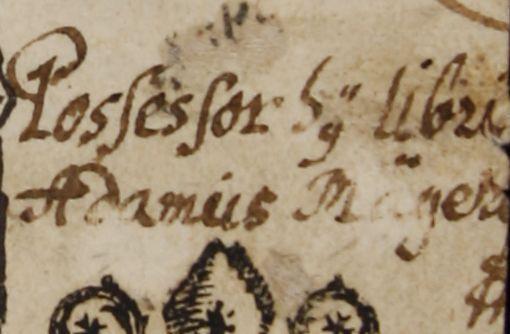 Possessor hꝰ libri
Adamus Mäger